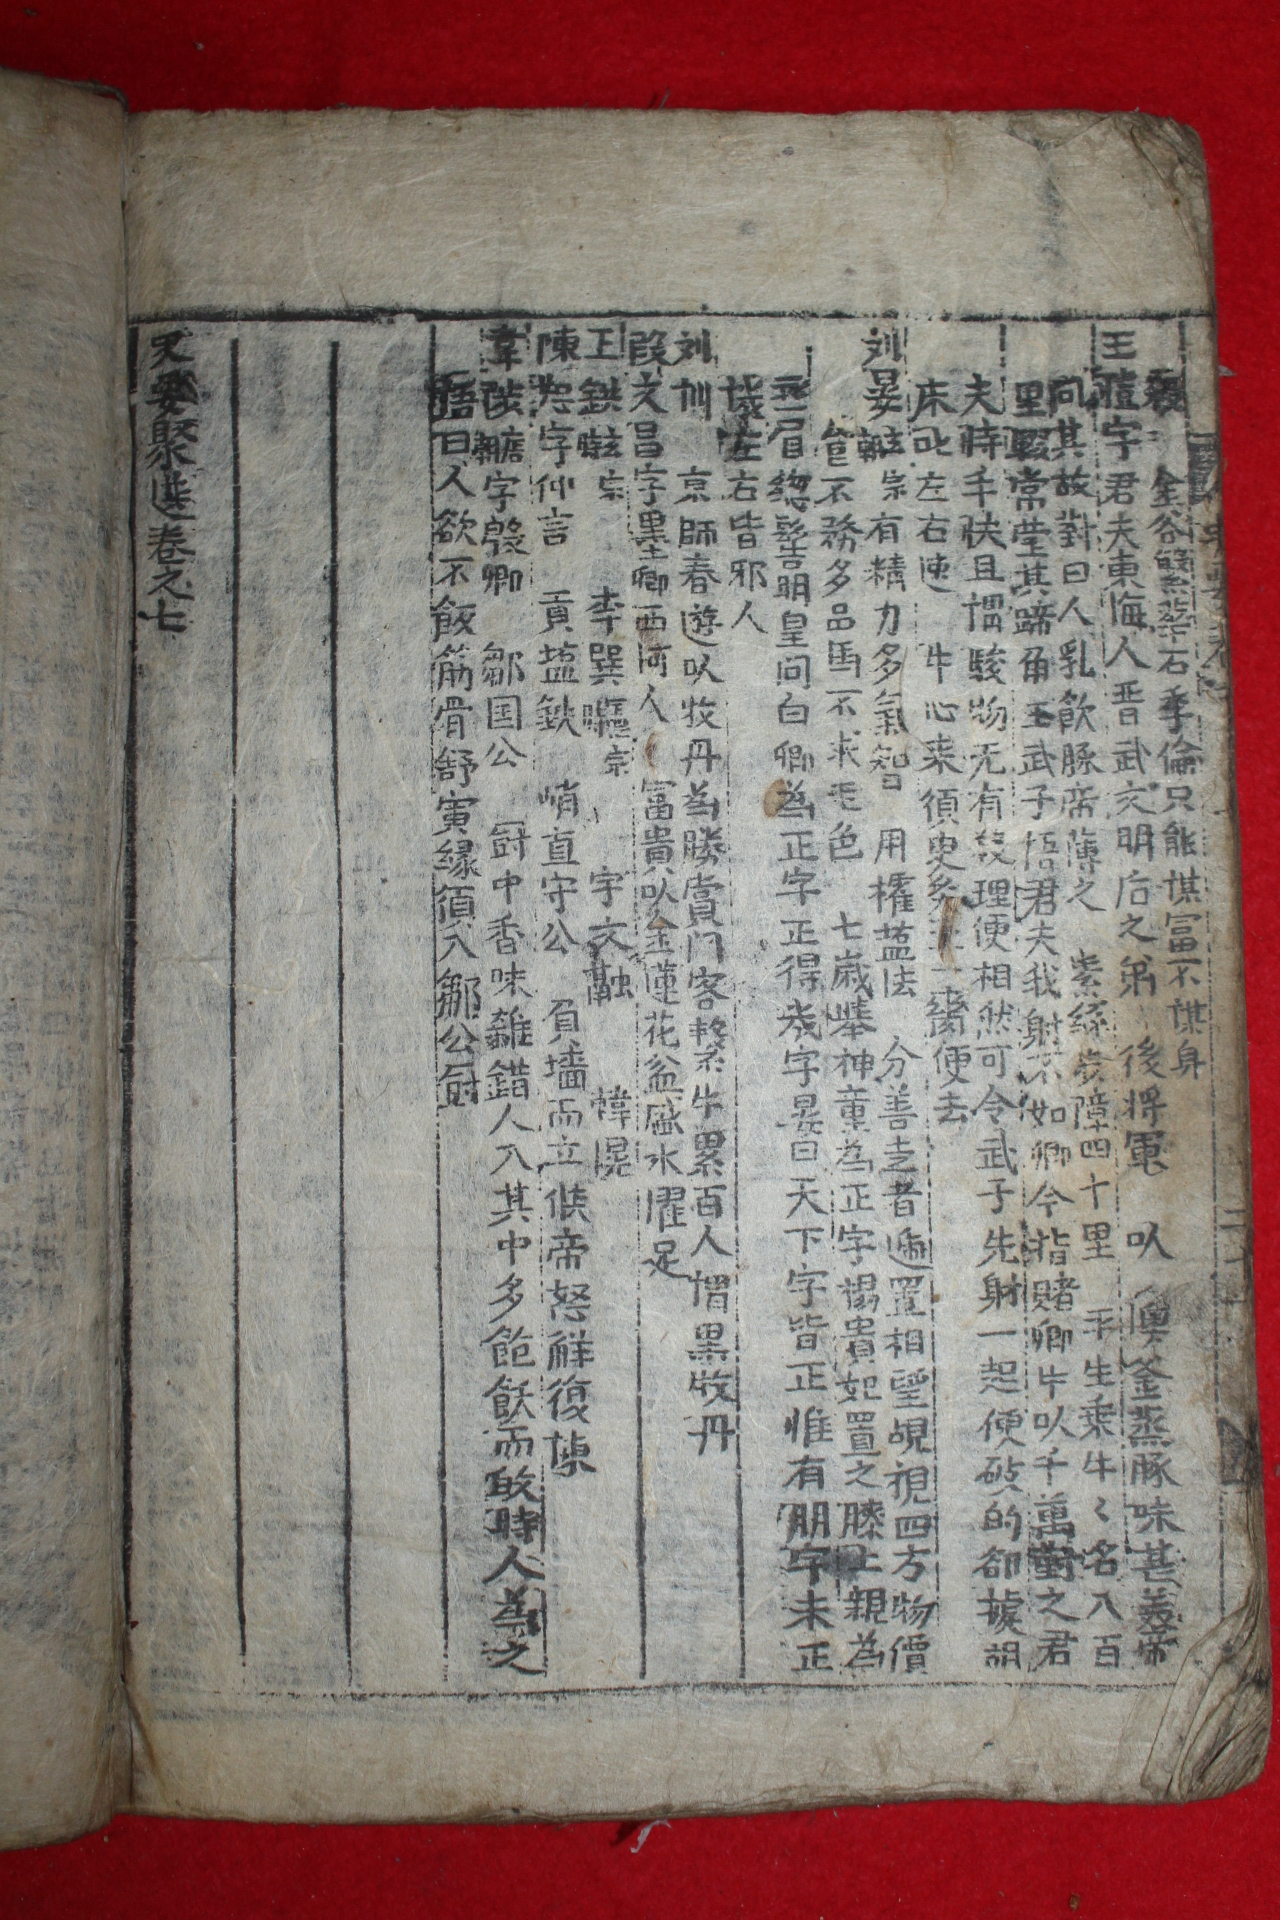 金谷繁華石季倫只能謀冨不謀身
王愷字君夫東海人晋武文明后之弟 後將軍 以 釜蒸豚味甚美帝
问其故對曰人乳飮豚帝薄之 紫絲步障四十里 平生乗牛〻名八百
里駁常瑩其蹄角王武子悟君夫我射不如卿今指賭卿牛以千萬對之君
夫恃手快且謂駿物无有殺理便相然可令武子先射一起便破的却據胡
床叱左右速 牛心来須臾炙至一臠便去
刘晏 玄宗有精力多氣智 用權塩法 分善走者逓置相望覘視四方物價
不務多品馬不求毛色 七歲擧神童為正字楊貴妃置之膝上親為
画眉緫髻明皇问曰卿為正字正得幾字晏曰天下字皆正惟有朋字未正
左右皆邪人
刘训 京師春遊以牧丹為勝賞门客繋牛累百人 黒牧丹
段文昌字墨卿西河人 富貴以金蓮花盆盛水濯足
王鉷 玄宗 李巽 宗 宇文融 韓滉
陳恕字仲言 貢塩鉄 峭直守公 負墻而立俟帝怒觧復
韋陟 字殷卿 鄒国公 厨中香味雜錯人入其中多飽飫而 時人為之
語曰人欲不飯筋骨舒寅緣須入鄒公厨
聚選卷之七